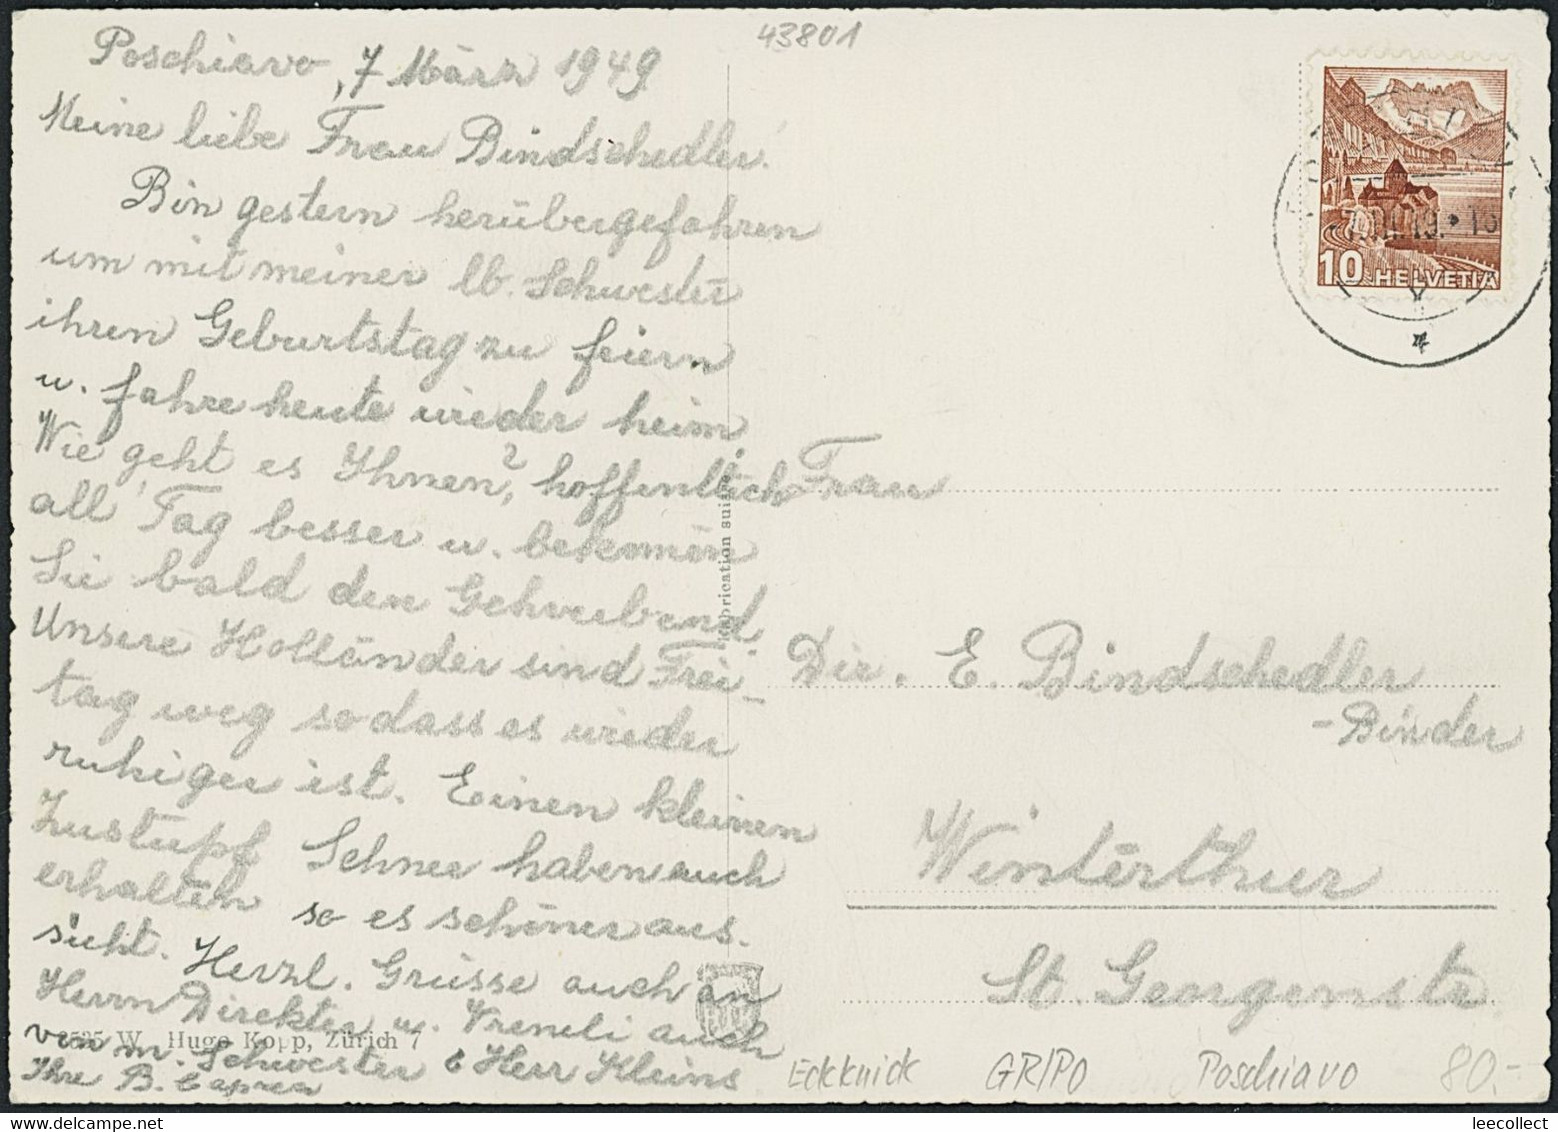 43801
Poschiavo, 7 März 1949
Meine liebe Frau Bindschedler!
Bin gestern herübergefahren
um mit meiner lb. Schwester
ihren Geburtstag zu feiern
u. fahre heute wieder heim
Wie geht es Ihnen?, hoffentlich
all Tag besser u. bekommen
Sie bald den Gehverband.
Unsere Holländer sind Frei-
tag weg so dass es wieder
ruhiger ist. Einen kleinen
Zustupf Schnee haben auch
erhalten so es schöner aus-
sieht. Herzl. Grüsse auch an
Herrn Direkter u. Vreneli auch
von m. Schwester & Herr Kleins
Ihre B.
W. Hugo Kopp, Zürich 7
Fabrication suisse
10 HELVETIA
Frau
Dir. E. Bindschedler
-Binder
Winterthur
St. Georgenstr
Eckknick GR/PO Poschiavo 80.-
leecollect